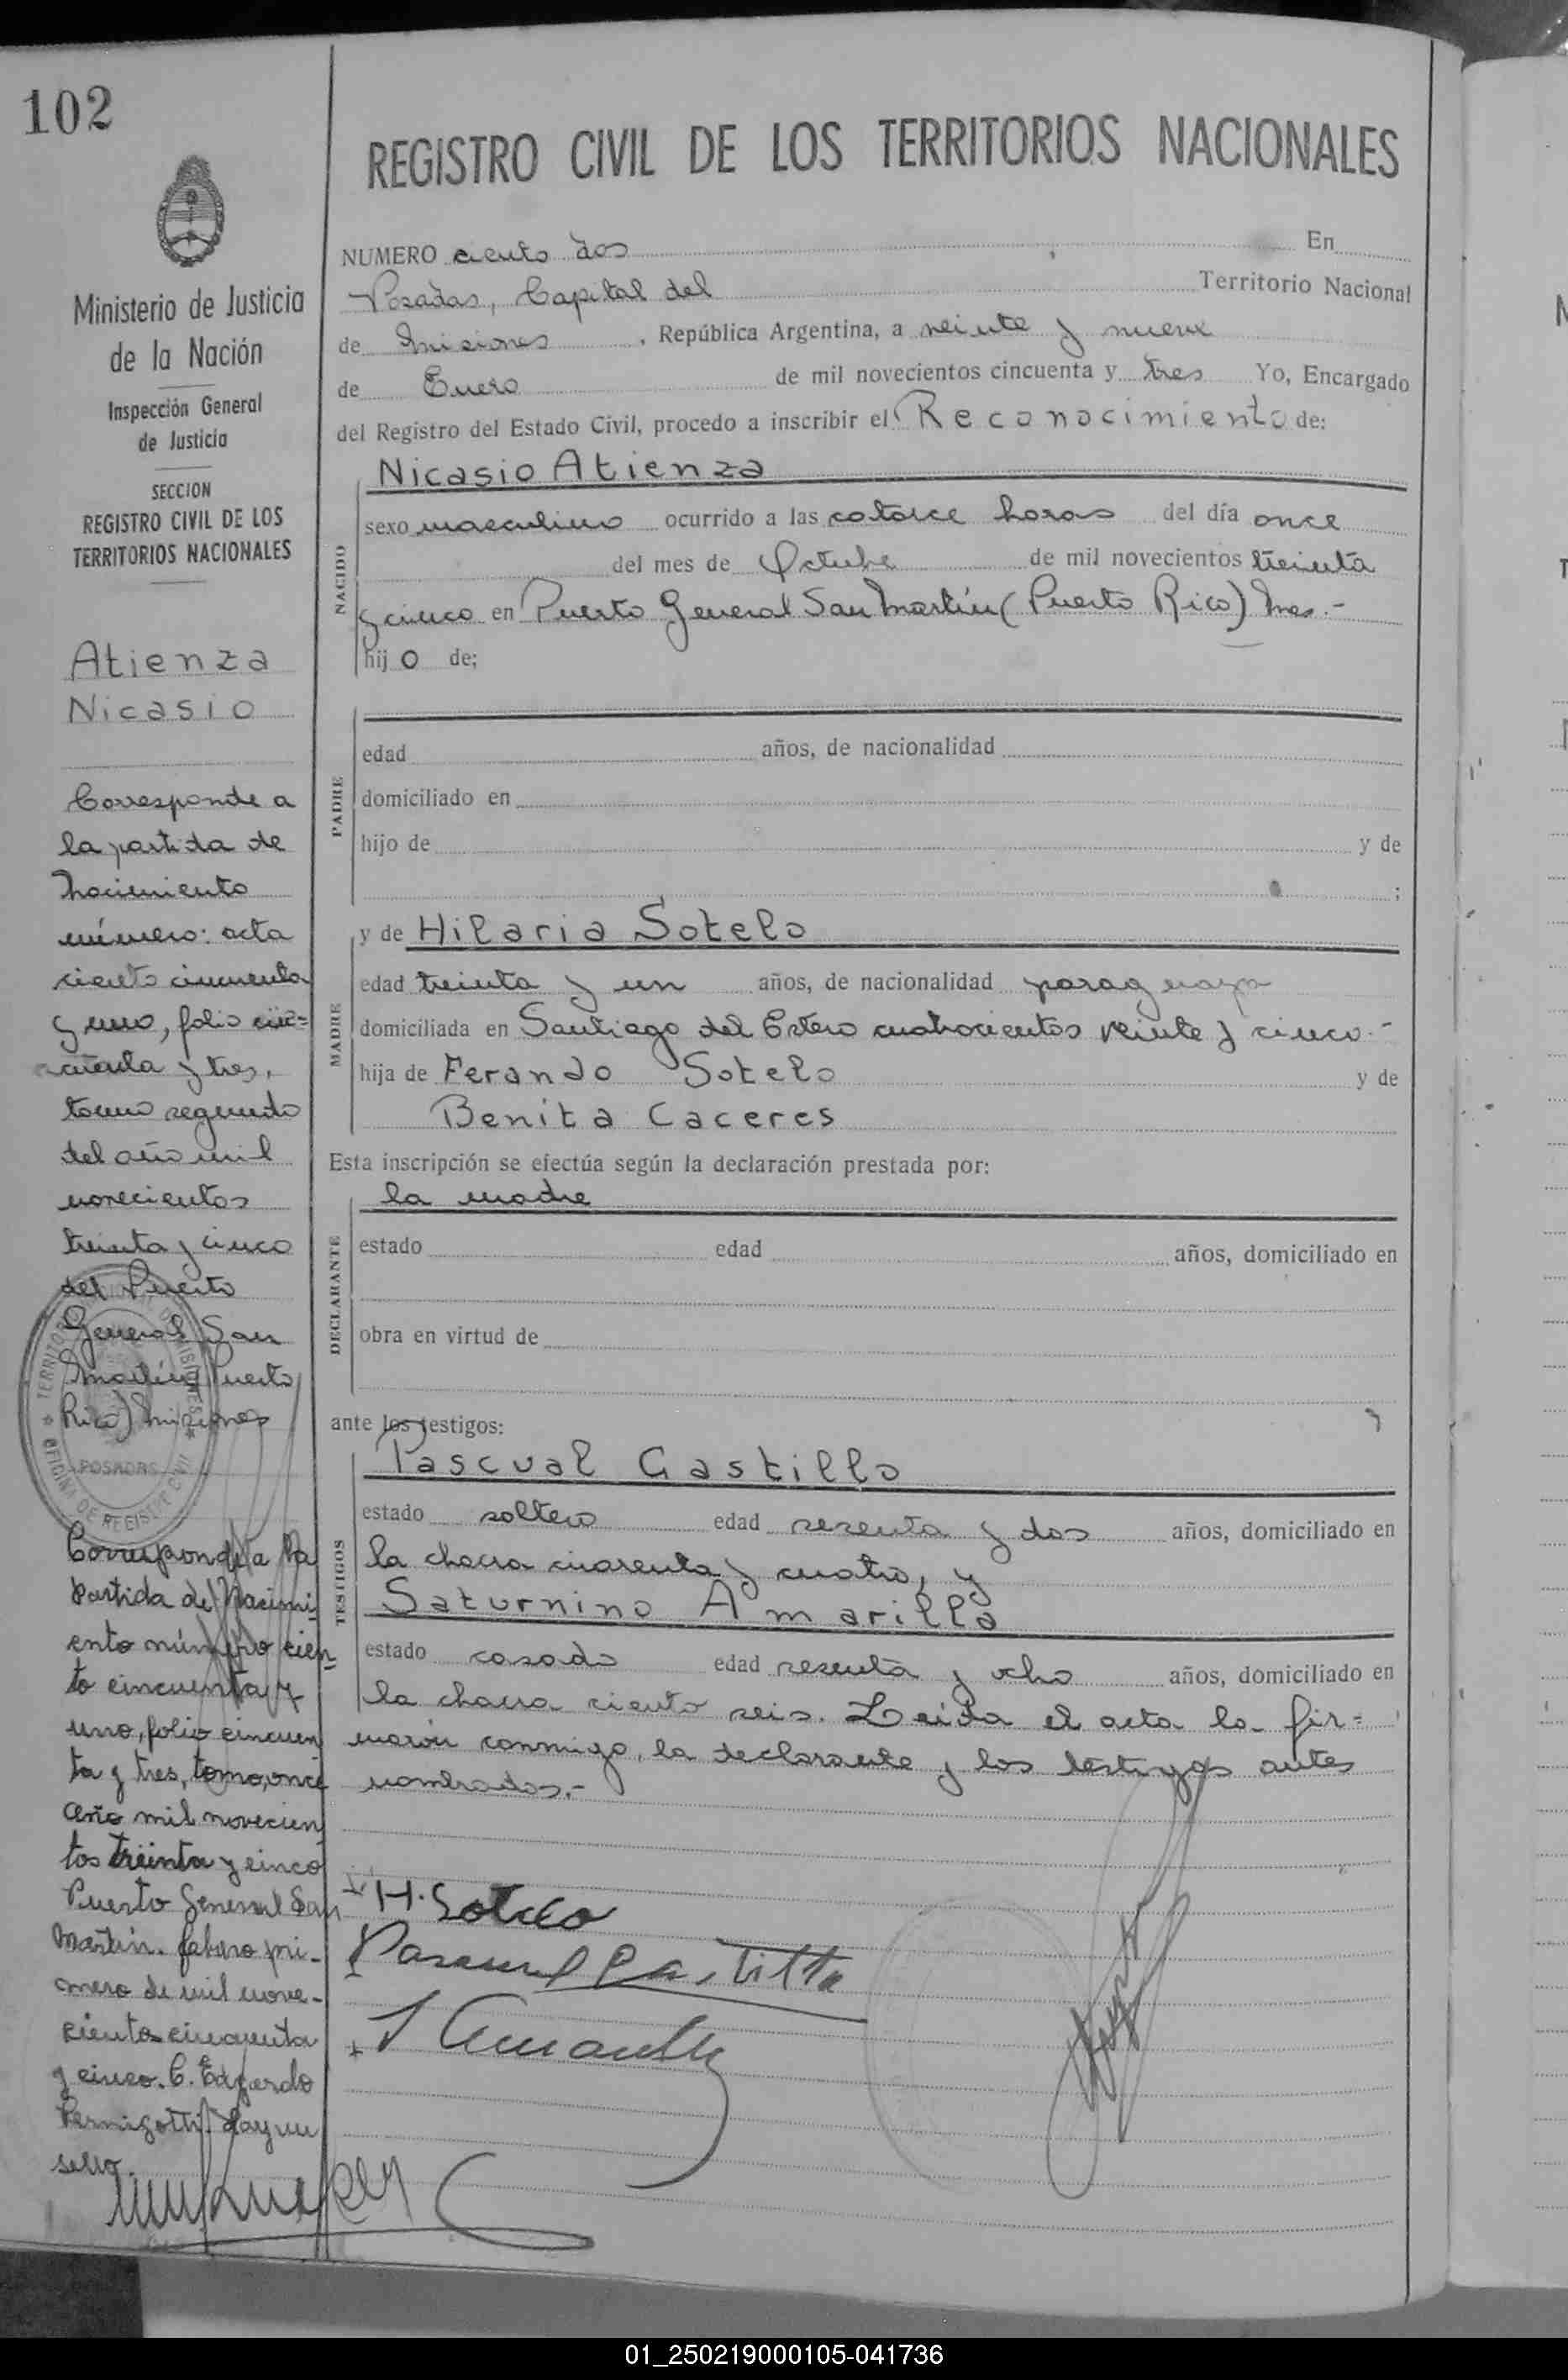 102
Ministerio de Justicia
de la Nación
Inspección General
de Justicia
SECCION
REGISTRO CIVIL DE LOS
TERRITORIOS NACIONALES
Atienza
Nicasio
Corresponde a
la partida de
Nacimiento
número: acta
ciento cincuenta
y uno, folio cin=
cuenta y tres,
tomo segundo
del año mil
novecientos
treinta y cinco
del Puerto
General San
Martín (Puerto
Rico) Misiones
POSADAS
OFICINA DE REGISTRO CIVIL
Corresponde a la
Partida de Nacimi-
ento número cien=
to cincuenta y
uno, folio cincuen
ta y tres, tomo, once
año mil novecien
tos treinta y cinco
Puerto General San
Martín. febrero pri-
mero de mil nove-
cientos cincuenta
y cinco. C. Edgardo
Pernigotti. Hay un
sello.
REGISTRO CIVIL DE LOS TERRITORIOS NACIONALES
NUMERO ciento dos En
Posadas, Capital del Territorio Nacional
de Misiones, República Argentina, a veinte y nueve
de Enero de mil novecientos cincuenta y tres Yo, Encargado
del Registro del Estado Civil, procedo a inscribir el Reconocimiento de:
NACIDO
Nicasio Atienza
sexo masculino ocurrido a las catorce horas del día once
del mes de Octubre de mil novecientos treinta
y cinco en Puerto General San Martín (Puerto Rico) Mes.-
hijo de;
PADRE
edad años, de nacionalidad
domiciliado en
hijo de y de
;
MADRE
y de Hilaria Sotelo
edad treinta y un años, de nacionalidad paraguaya
domiciliada en Santiago del Estero cuatrocientos veinte y cinco.-
hija de Ferando Sotelo y de
Benita Caceres
Esta inscripción se efectúa según la declaración prestada por:
DECLARANTE
la madre
estado edad años, domiciliado en
obra en virtud de
ante los testigos:
TESTIGOS
Pascual Castillo
estado soltero edad sesenta y dos años, domiciliado en
la chacra cuarenta y cuatro, y
Saturnino Amarilla
estado casado edad sesenta y ocho años, domiciliado en
la chacra ciento seis. Leída el acta la fir=
maron conmigo, la declarante y los testigos antes
nombrados.-
H. Sotelo
Pascual Castillo
S Amarilla
01_250219000105-041736